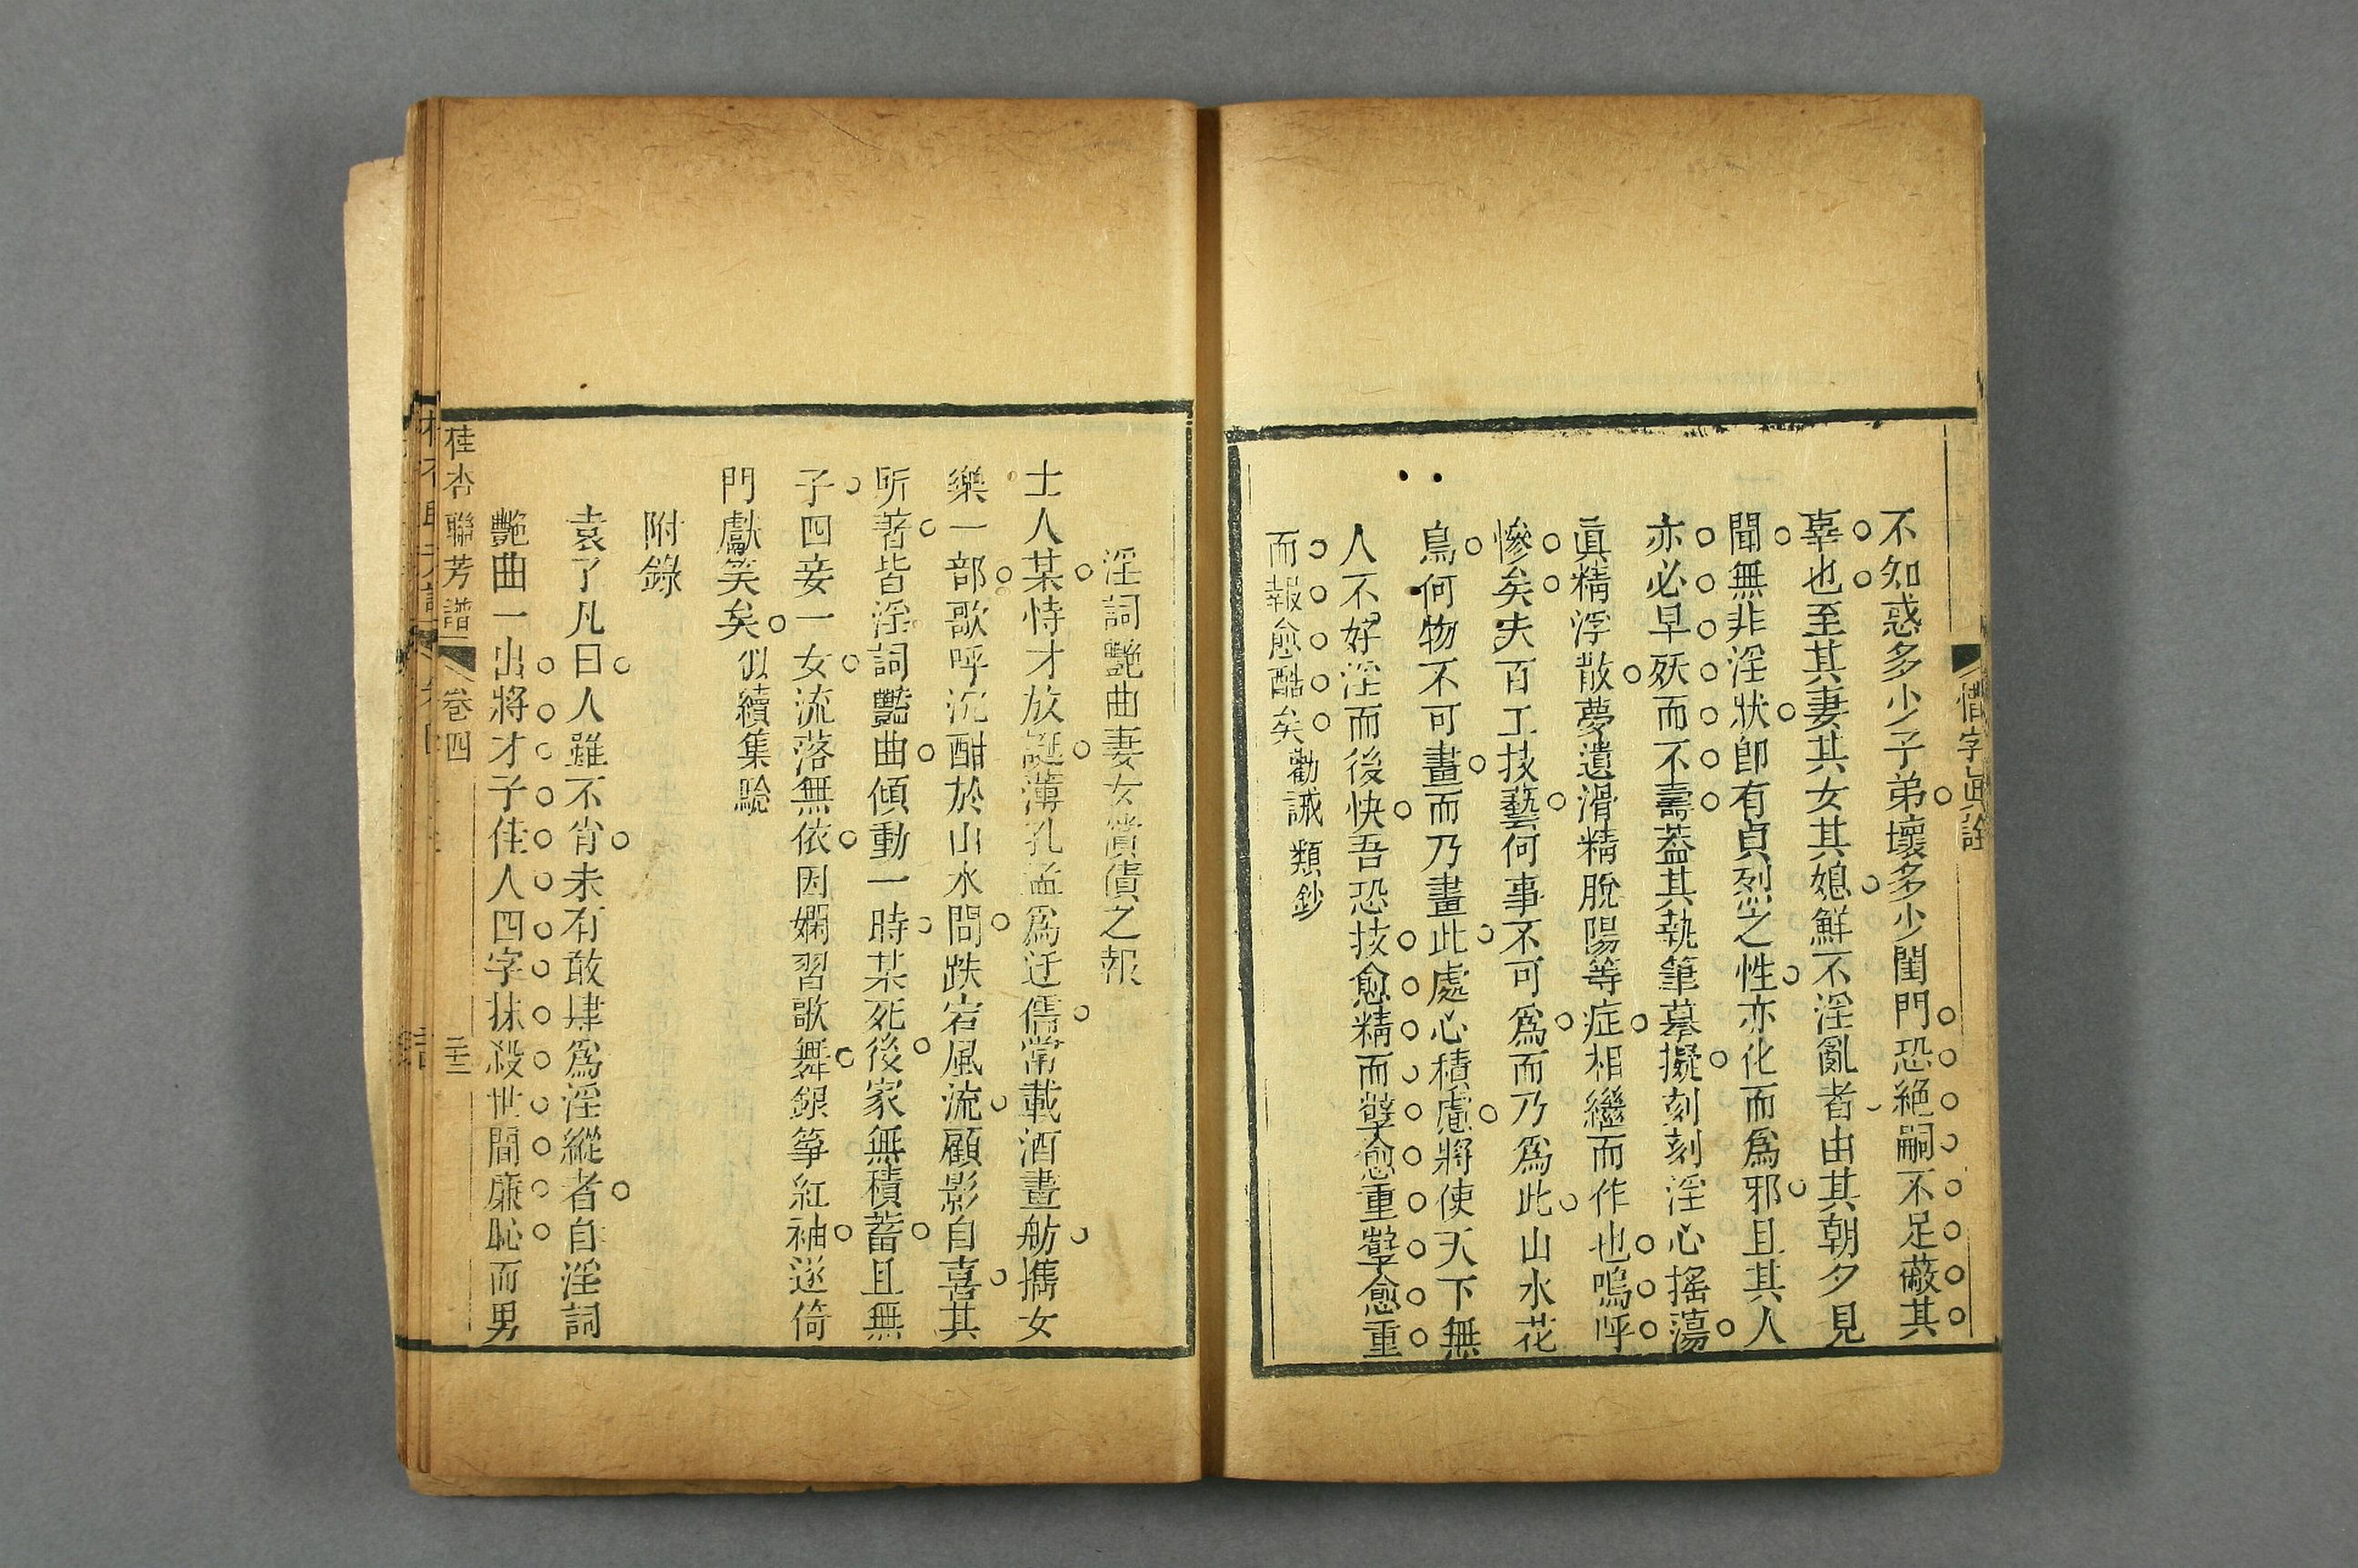 惜字眞詮
不知惑多少子弟壞多少閨門恐絕嗣不足蔽其
辜也至其妻其女其媳鮮不淫亂者由其朝夕見
聞無非淫狀卽有貞烈之性亦化而爲邪且其人
亦必早殀而不壽蓋其執筆摹擬刻刻淫心搖蕩
眞精浮散夢遺滑精脫陽等症相繼而作也嗚呼
慘矣夫百工技藝何事不可爲而乃爲此山水花
鳥何物不可畫而乃畫此處心積慮將使天下無
人不好淫而後快吾恐技愈精而孽愈重孽愈重
而報愈酷矣勸誡類鈔
淫詞艷曲妻女償債之報
士人某恃才放誕薄孔孟爲迂儒常載酒畫舫攜女
樂一部歌呼沉酣於山水間跌宕風流顧影自喜其
所著皆淫詞豔曲傾動一時某死後家無積蓄且無
子四妾一女流落無依因嫻習歌舞銀箏紅袖遂倚
門獻笑矣似續集驗
附錄
袁了凡曰人雖不肖未有敢肆爲淫縱者自淫詞
艷曲一出將才子佳人四字抹殺世間廉恥而男
桂杏聯芳譜 卷四 二十三